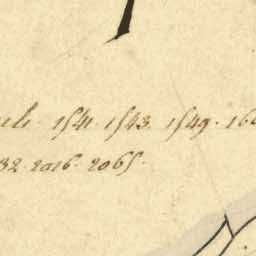 1541. 1543. 1549. 16
32. 2016. 2065.